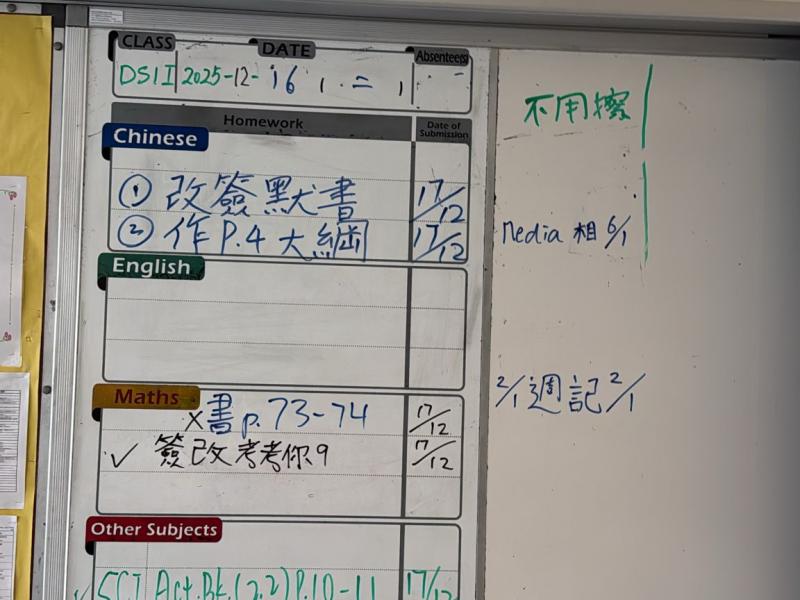 CLASS DATE Absentees
DS1I 2025-12-16
Homework Date of Submission
Chinese
① 改簽默書 17/12
② 作P.4大綱 17/12
English
Maths
×書p.73-74 17/12
✓ 簽改考考你9 17/12
Other Subjects
✓ SCI Act.Bk.(2.2)P.10-11 17/12
不用擦
Media 相 6/1
2/1 週記 2/1